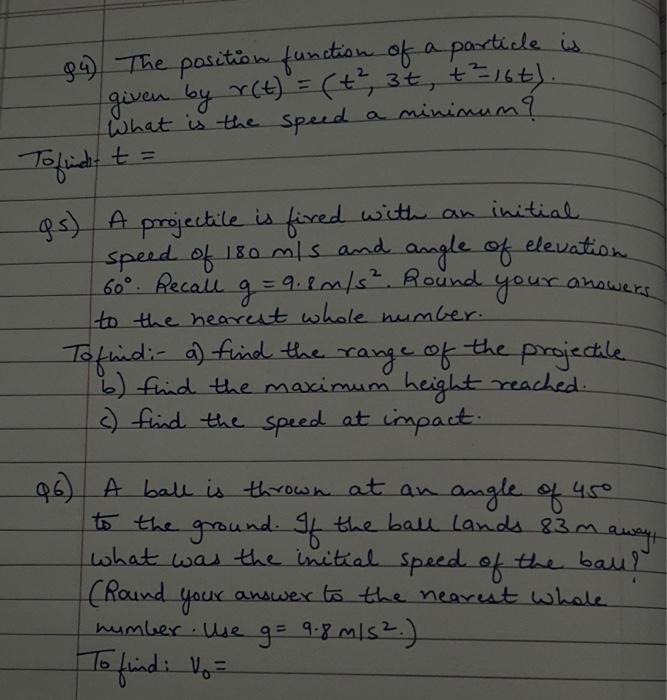 Q4) The position function of a particle is
given by r(t) = (t², 3t, t²-16t).
What is the speed a minimum?
To find:- t =
Q5) A projectile is fired with an initial
speed of 180 m/s and angle of elevation
60°. Recall g = 9.8m/s². Round your answers
to the nearest whole number.
To find:- a) find the range of the projectile
b) find the maximum height reached.
c) find the speed at impact.
Q6) A ball is thrown at an angle of 45°
to the ground. If the ball lands 83 m away,
what was the initial speed of the ball?
(Round your answer to the nearest whole
number. Use g= 9.8 m/s².)
To find: V₀=